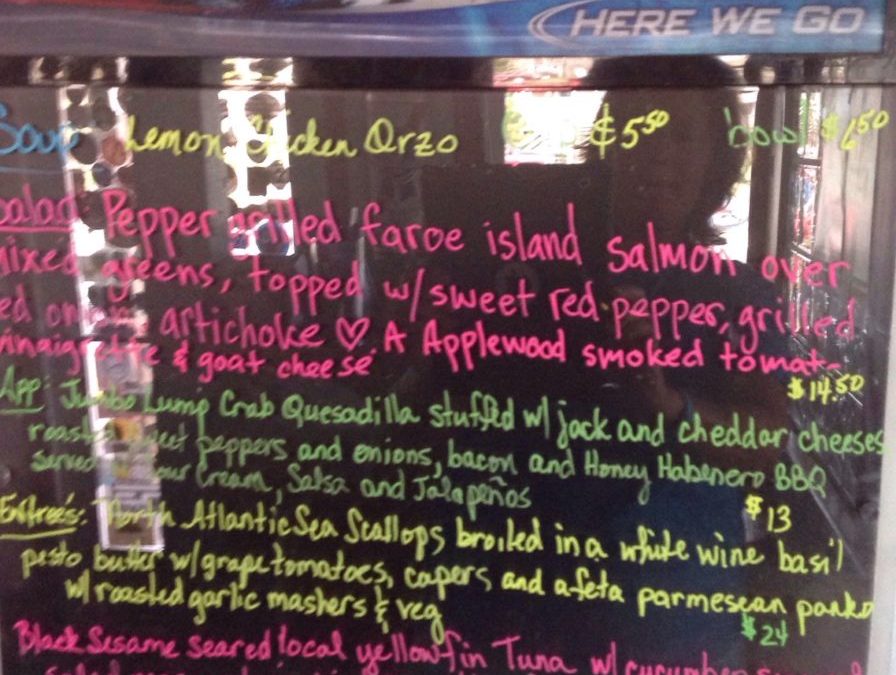 HERE WE GO
Soup Lemon Chicken Orzo $5.50 bowl $6.50
Salad Pepper grilled faroe island salmon over
mixed greens, topped w/ sweet red pepper, grilled
red onion, artichoke ♡ A Applewood smoked tomato
vinaigrette & goat cheese
$14.50
App: Jumbo Lump Crab Quesadilla stuffed w/ jack and cheddar cheeses
roasted sweet peppers and onions, bacon and Honey Habenero BBQ
served sour Cream, Salsa and Jalapeños
$13
Entree's: North Atlantic Sea Scallops broiled in a white wine basil
pesto butter w/ grape tomatoes, capers and a feta parmesean panko
w/ roasted garlic mashers & veg
$24
Black Sesame seared local yellowfin Tuna w/ cucumber